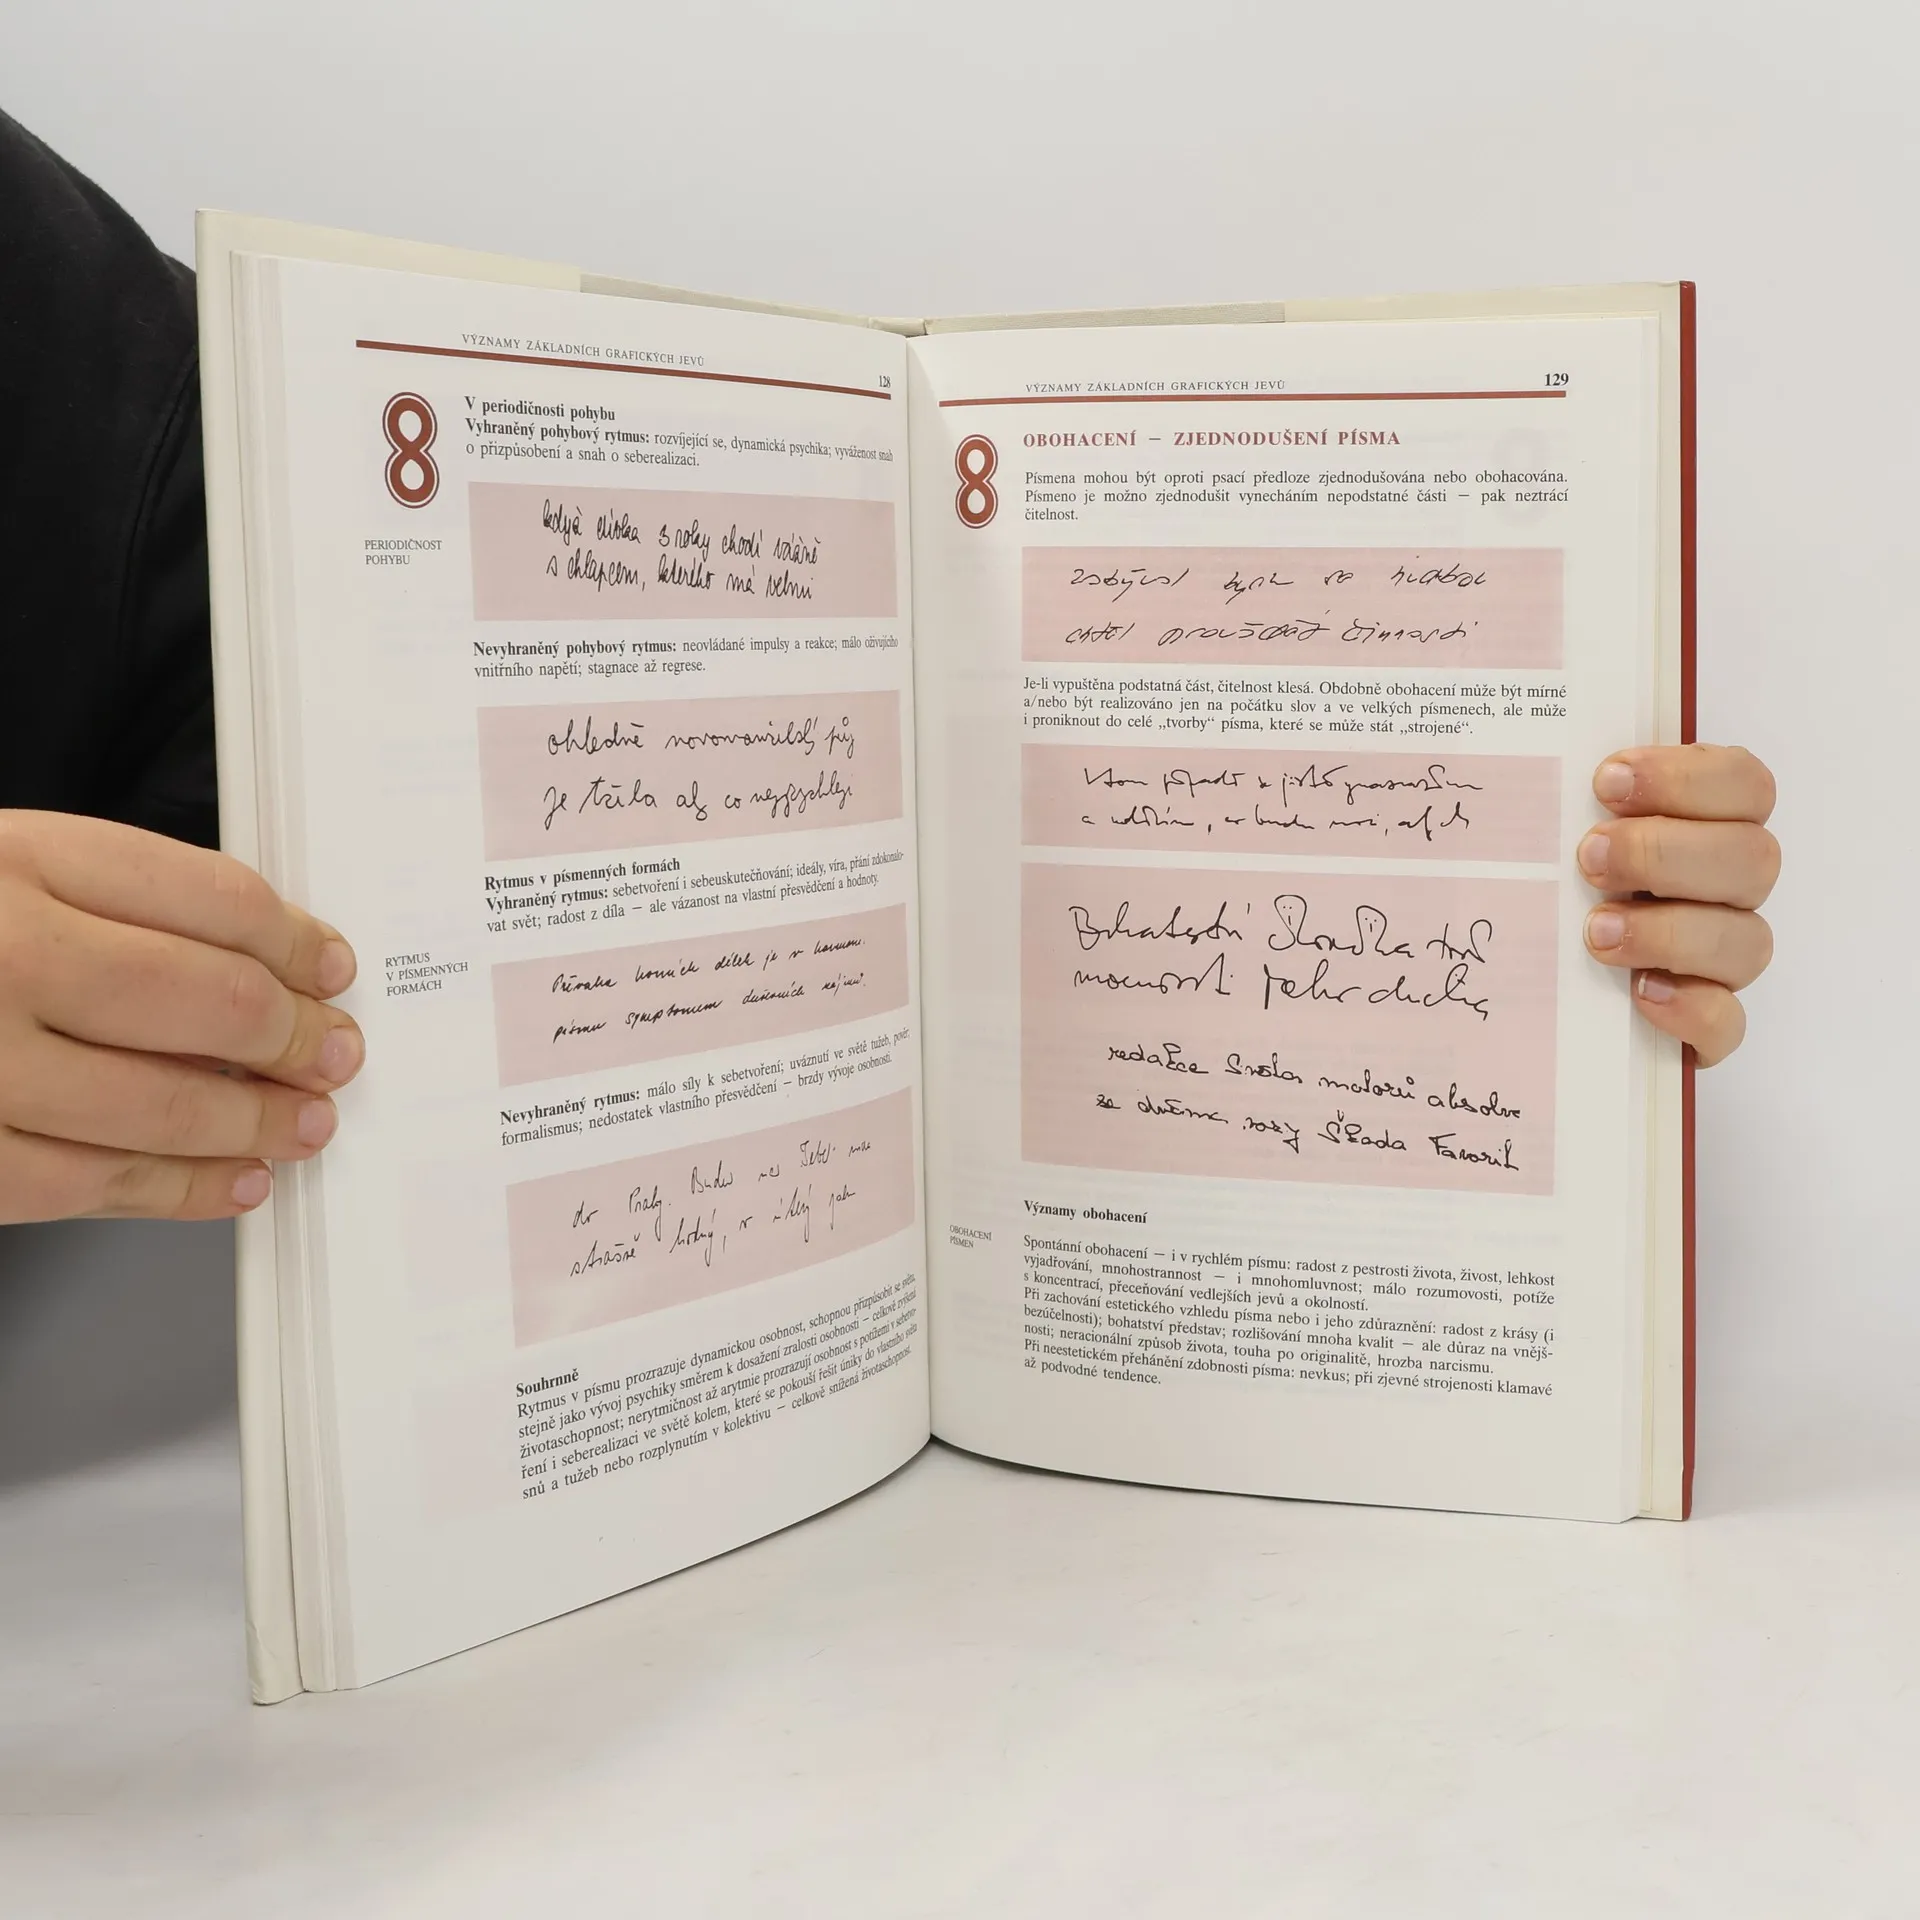 VÝZNAMY ZÁKLADNÍCH GRAFICKÝCH JEVŮ
128
8
V periodičnosti pohybu
Vyhraněný pohybový rytmus: rozvíjející se, dynamická psychika; vyváženost snah
o přizpůsobení a snah o seberealizaci.
PERIODIČNOST
POHYBU
dívka 3 roky chodí vážně
s chlapcem, kterého má velmi
Nevyhraněný pohybový rytmus: neovládané impulsy a reakce; málo oživujícího
vnitřního napětí; stagnace až regrese.
ohledně novomanželský půj
je třeba co nejrychleji
Rytmus v písmenných formách
Vyhraněný rytmus: sebetvoření i sebeuskutečňování; ideály, víra, přání zdokonalo-
vat svět; radost z díla – ale vázanost na vlastní přesvědčení a hodnoty.
RYTMUS
V PÍSMENNÝCH
FORMÁCH
Převaha horních délek je v harmon.
písmu symptomem duševních zájmů.
Nevyhraněný rytmus: málo síly k sebetvoření; uváznutí ve světě tužeb, pověr;
formalismus; nedostatek vlastního přesvědčení – brzdy vývoje osobnosti.
do Prahy. Budu na Tebe
strašně hodný, v
Souhrnně
Rytmus v písmu prozrazuje dynamickou osobnost, schopnou přizpůsobit se světu,
stejně jako vývoj psychiky směrem k dosažení zralosti osobnosti – celkově zvýšená
životaschopnost; nerytmičnost až arytmie prozrazují osobnost s potížemi v sebetvo-
ření i seberealizaci ve světě kolem, které se pokouší řešit úniky do vlastního světa
snů a tužeb nebo rozplynutím v kolektivu – celkově snížená životaschopnost.
VÝZNAMY ZÁKLADNÍCH GRAFICKÝCH JEVŮ
129
8
OBOHACENÍ – ZJEDNODUŠENÍ PÍSMA
Písmena mohou být oproti psací předloze zjednodušována nebo obohacována.
Písmeno je možno zjednodušit vynecháním nepodstatné části – pak neztrácí
čitelnost.
zabýval bych se
chtěl činnosti
Je-li vypuštěna podstatná část, čitelnost klesá. Obdobně obohacení může být mírné
a/nebo být realizováno jen na počátku slov a ve velkých písmenech, ale může
i proniknout do celé „tvorby“ písma, které se může stát „strojené“.
V tom případě
a budu
Bohatství
mocnosti jeho
redakce Světa motorů absolv
se dvěma vozy Škoda Favorit
Významy obohacení
OBOHACENÍ
PÍSMEN
Spontánní obohacení – i v rychlém písmu: radost z pestrosti života, živost, lehkost
vyjadřování, mnohostrannost – i mnohomluvnost; málo rozumovosti, potíže
s koncentrací, přeceňování vedlejších jevů a okolností.
Při zachování estetického vzhledu písma nebo i jeho zdůraznění: radost z krásy (i
bezúčelnosti); bohatství představ; rozlišování mnoha kvalit – ale důraz na vnějš-
nosti; neracionální způsob života, touha po originalitě, hrozba narcismu.
Při neestetickém přehánění zdobnosti písma: nevkus; při zjevné strojenosti klamavé
až podvodné tendence.